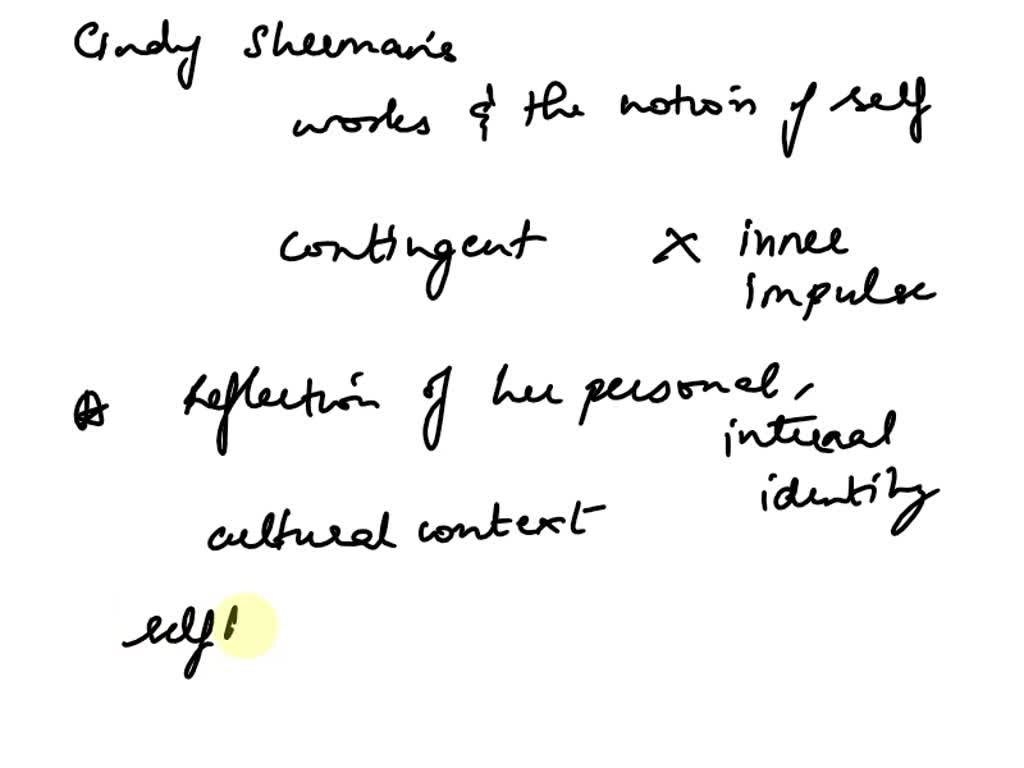 Cindy Sheeman's
works & the notion of self
contingent x inner
impulse
reflection of her personal,
internal
identity
cultural context
self